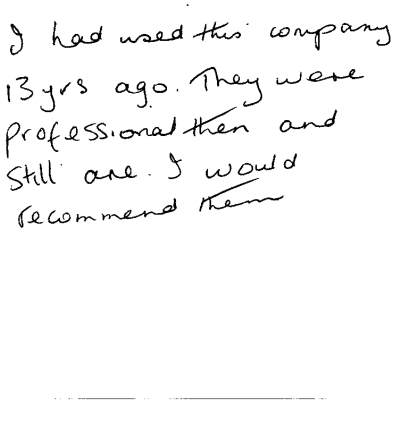 I had used this company
13 yrs ago. They were
professional then and
still are. I would
recommend them